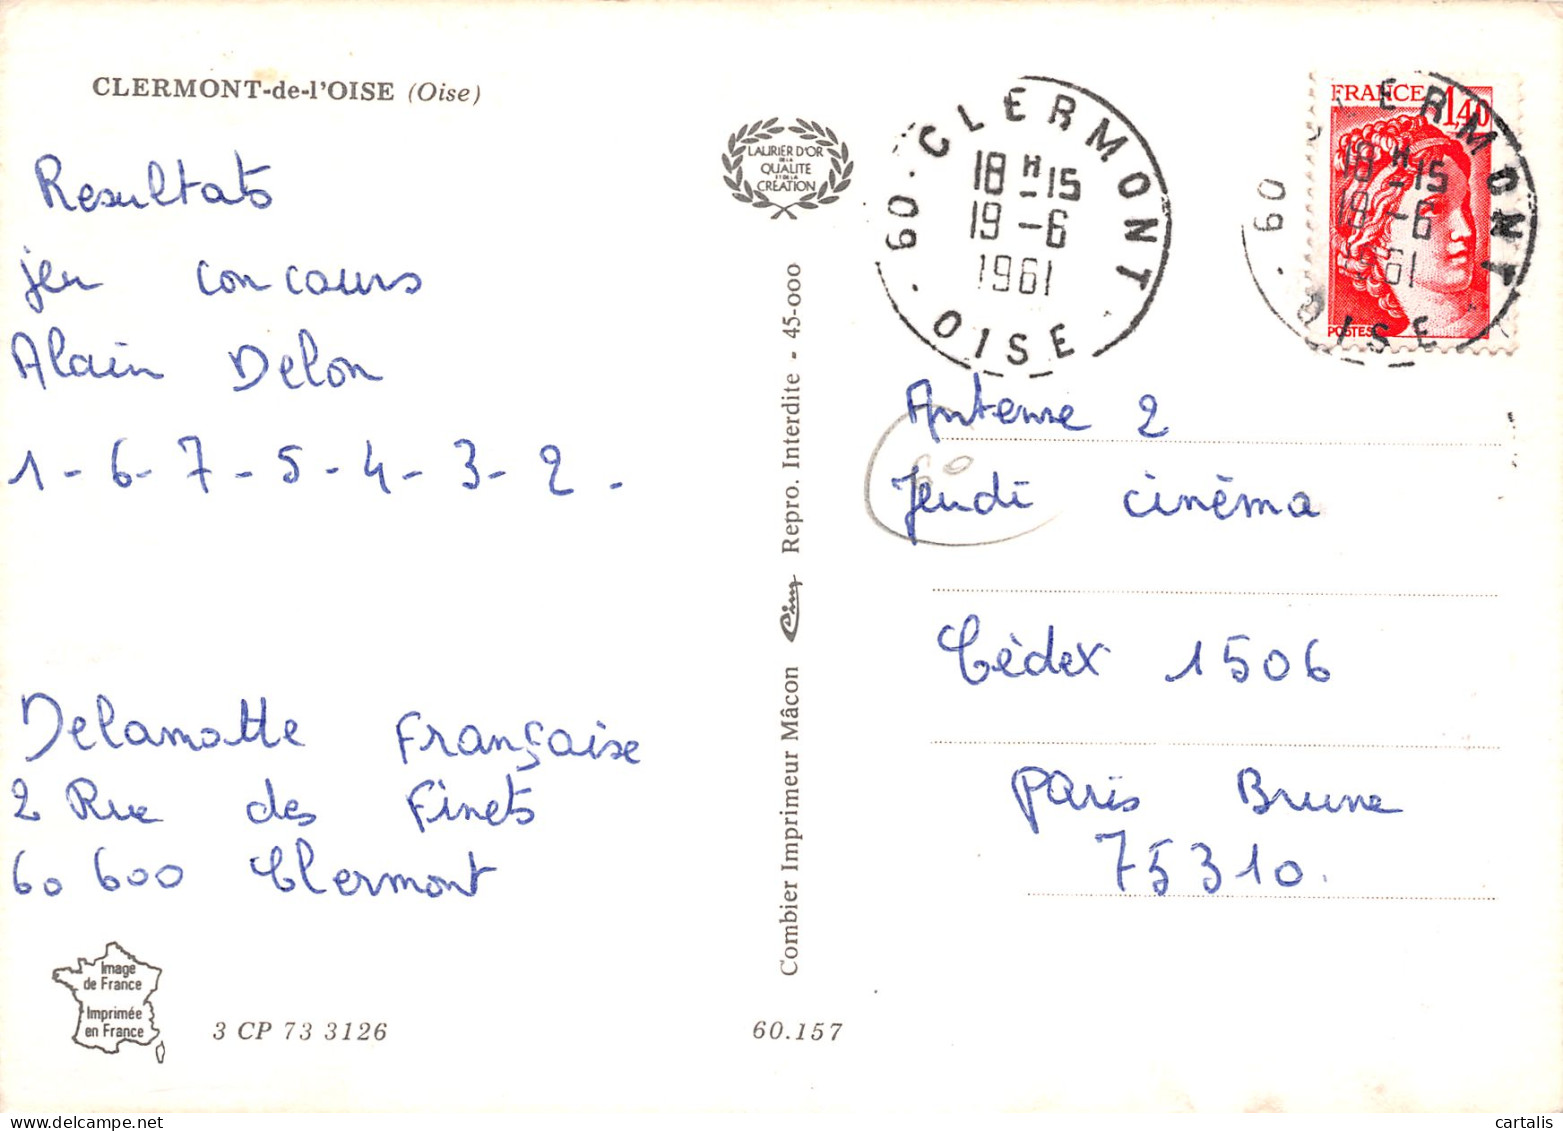 CLERMONT-de-l'OISE (Oise)
Resultats
jeu concours
Alain Delon
1 - 6 - 7 - 5 - 4 - 3 - 2 -
Delamotte Française
2 Rue des Finets
60 600 Clermont
Image
de France
Imprimée
en France
3 CP 73 3126
LAURIER D'OR
DE LA
QUALITE
ET DE LA
CRÉATION
Combier Imprimeur Mâcon Cim Repro. Interdite - 45-000
60.157
60 - CLERMONT - OISE
18 H -15
19 -6
1961
FRANCE 1,40
POSTES
60 - CLERMONT - OISE
18 H -15
19 -6
1961
Antenne 2
60
Jeudi cinéma
Cédex 1506
Paris Brune
75310.
cartalis